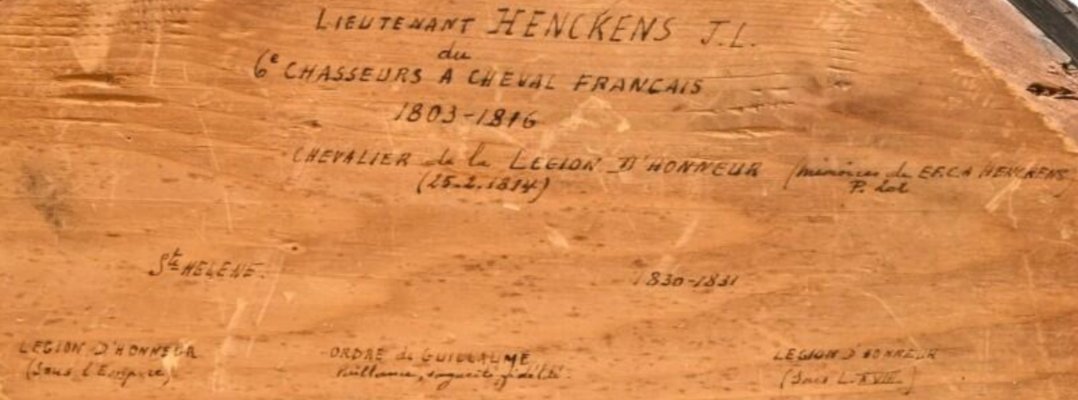 LIEUTENANT HENCKENS J.L.
du
6e CHASSEURS A CHEVAL FRANCAIS
1803-1816
CHEVALIER de la LEGION D'HONNEUR (mémoires de E.F.C.A HENCKENS)
(25.2.1814) P.
Ste HELENE.
1830-1831
LEGION D'HONNEUR ORDRE de GUILLAUME LEGION D'HONNEUR
(Sous l'Empire) fidélité. (Sous L. XVIII)